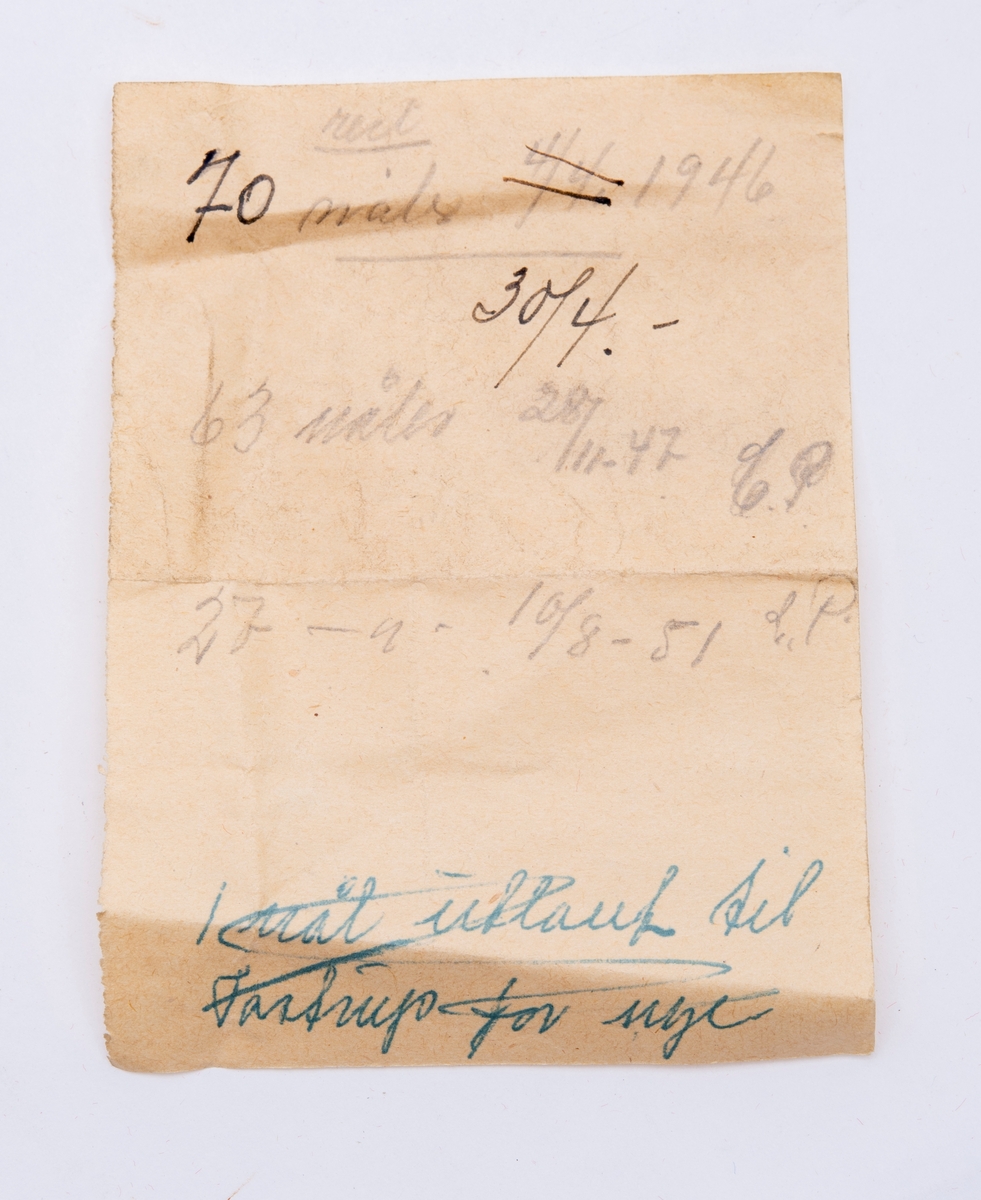 rest
70 nåler 4/4. 1946
30/4. -
63 nåler 28/11-47 E.P.
27 - " - 10/8 - 51 E.P.
1 nål utlant til
Tostrup for nye